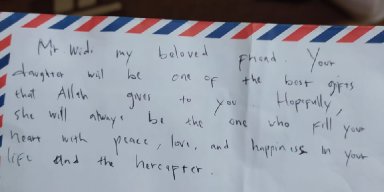 Mr Widi my beloved Fhand. Your
daughter will be one of the best gifts
that Allah gives to you Hopefully,
she will always be the one who fill your
heart with peace, love, and happiness in your
life and the hereafter.